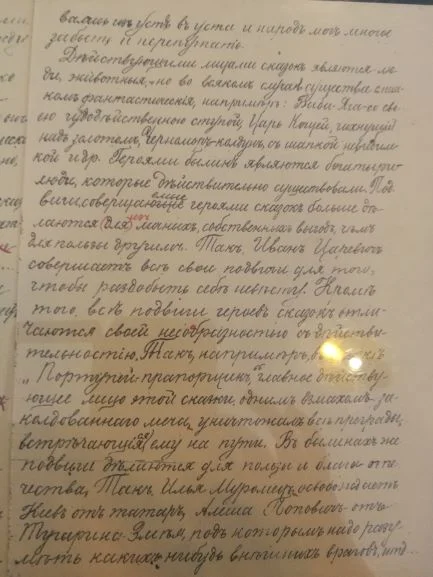 вались изъ устъ въ уста и народъ могъ многое
забыть и перепутать.
Дѣйствующими лицами сказокъ являются лю-
ди, животныя, но во всякомъ случаѣ существа слиш-
комъ фантастическія, напримѣръ: Баба-Яга со сво-
ею чудодѣйственною ступой, Царь Кощей, чахнущій
надъ золотомъ, Черноморъ-колдунъ, съ шапкой невидим-
кой и др. Героями былинъ являются богатыри-
люди, которые дѣйствительно существовали. Под-
виги, совершаемые героями сказокъ больше дѣ-
лаются (для) изъ личныхъ, собственныхъ выгодъ, чѣмъ
для пользы другимъ. Такъ, Иванъ Царевичъ
совершаетъ всѣ свои подвиги для того,
чтобы раздобыть себѣ невѣсту. Кромѣ
того, всѣ подвиги героевъ сказокъ отли-
чаются своей несообразностью съ дѣйстви-
тельностію. Такъ, напримѣръ, въ
„Портупей-прапорщикъ“ главное дѣйству-
ющее лицо этой сказки, однимъ взмахомъ за-
колдованнаго меча, уничтожалъ всѣ преграды,
встрѣчающіяся ему на пути. Въ былинахъ же
подвиги дѣлаются для пользы и блага оте-
чества, Такъ Илья Муромецъ освобождаетъ
Кіевъ отъ татаръ, Алёша Поповичъ отъ
Тугарина-Змѣя, подъ которымъ надо разу-
мѣть какихъ нибудь внѣшнихъ враговъ, итд...